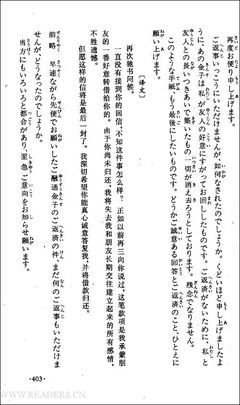 再度お便り申し上げます。
ご返済いっこうにいただけませんが、如何なされたのでしょうか。くどいほど申し上げましたよ
うに、あの金子は私が友人の好意にすがってお回ししたものです。ご返済がないために、私と
友人との長いつきあいで築いたもの一切が消え去ろうとしております。残念でなりません。
このような手紙、もう最後にしたいものです。どうかご誠意ある回答とご返済のこと、ひとえに
願い上げます。
〔译文〕
再次驰书问候。
一直没有接到你的回信,不知这件事怎么样?正如以前再三向你说过,这笔款项是我承蒙朋
友的一番好意转借给你的。由于你尚未归还,我将失去我和朋友长期交往建立起来的所有感情。
不胜遗憾。
但愿这样的信将是最后一封了。我深切希望你能真心诚意答复我,并将借款归还。
前略 早速ながら先便でお願いしたご融通金子のご返済の件、まだ何のご返事もいただけま
せんが、どうなったのでしょうか。
当方にもいろいろと都合があり、至急ご意向をお知らせ願います。
·403·
WWW.READERS.CN